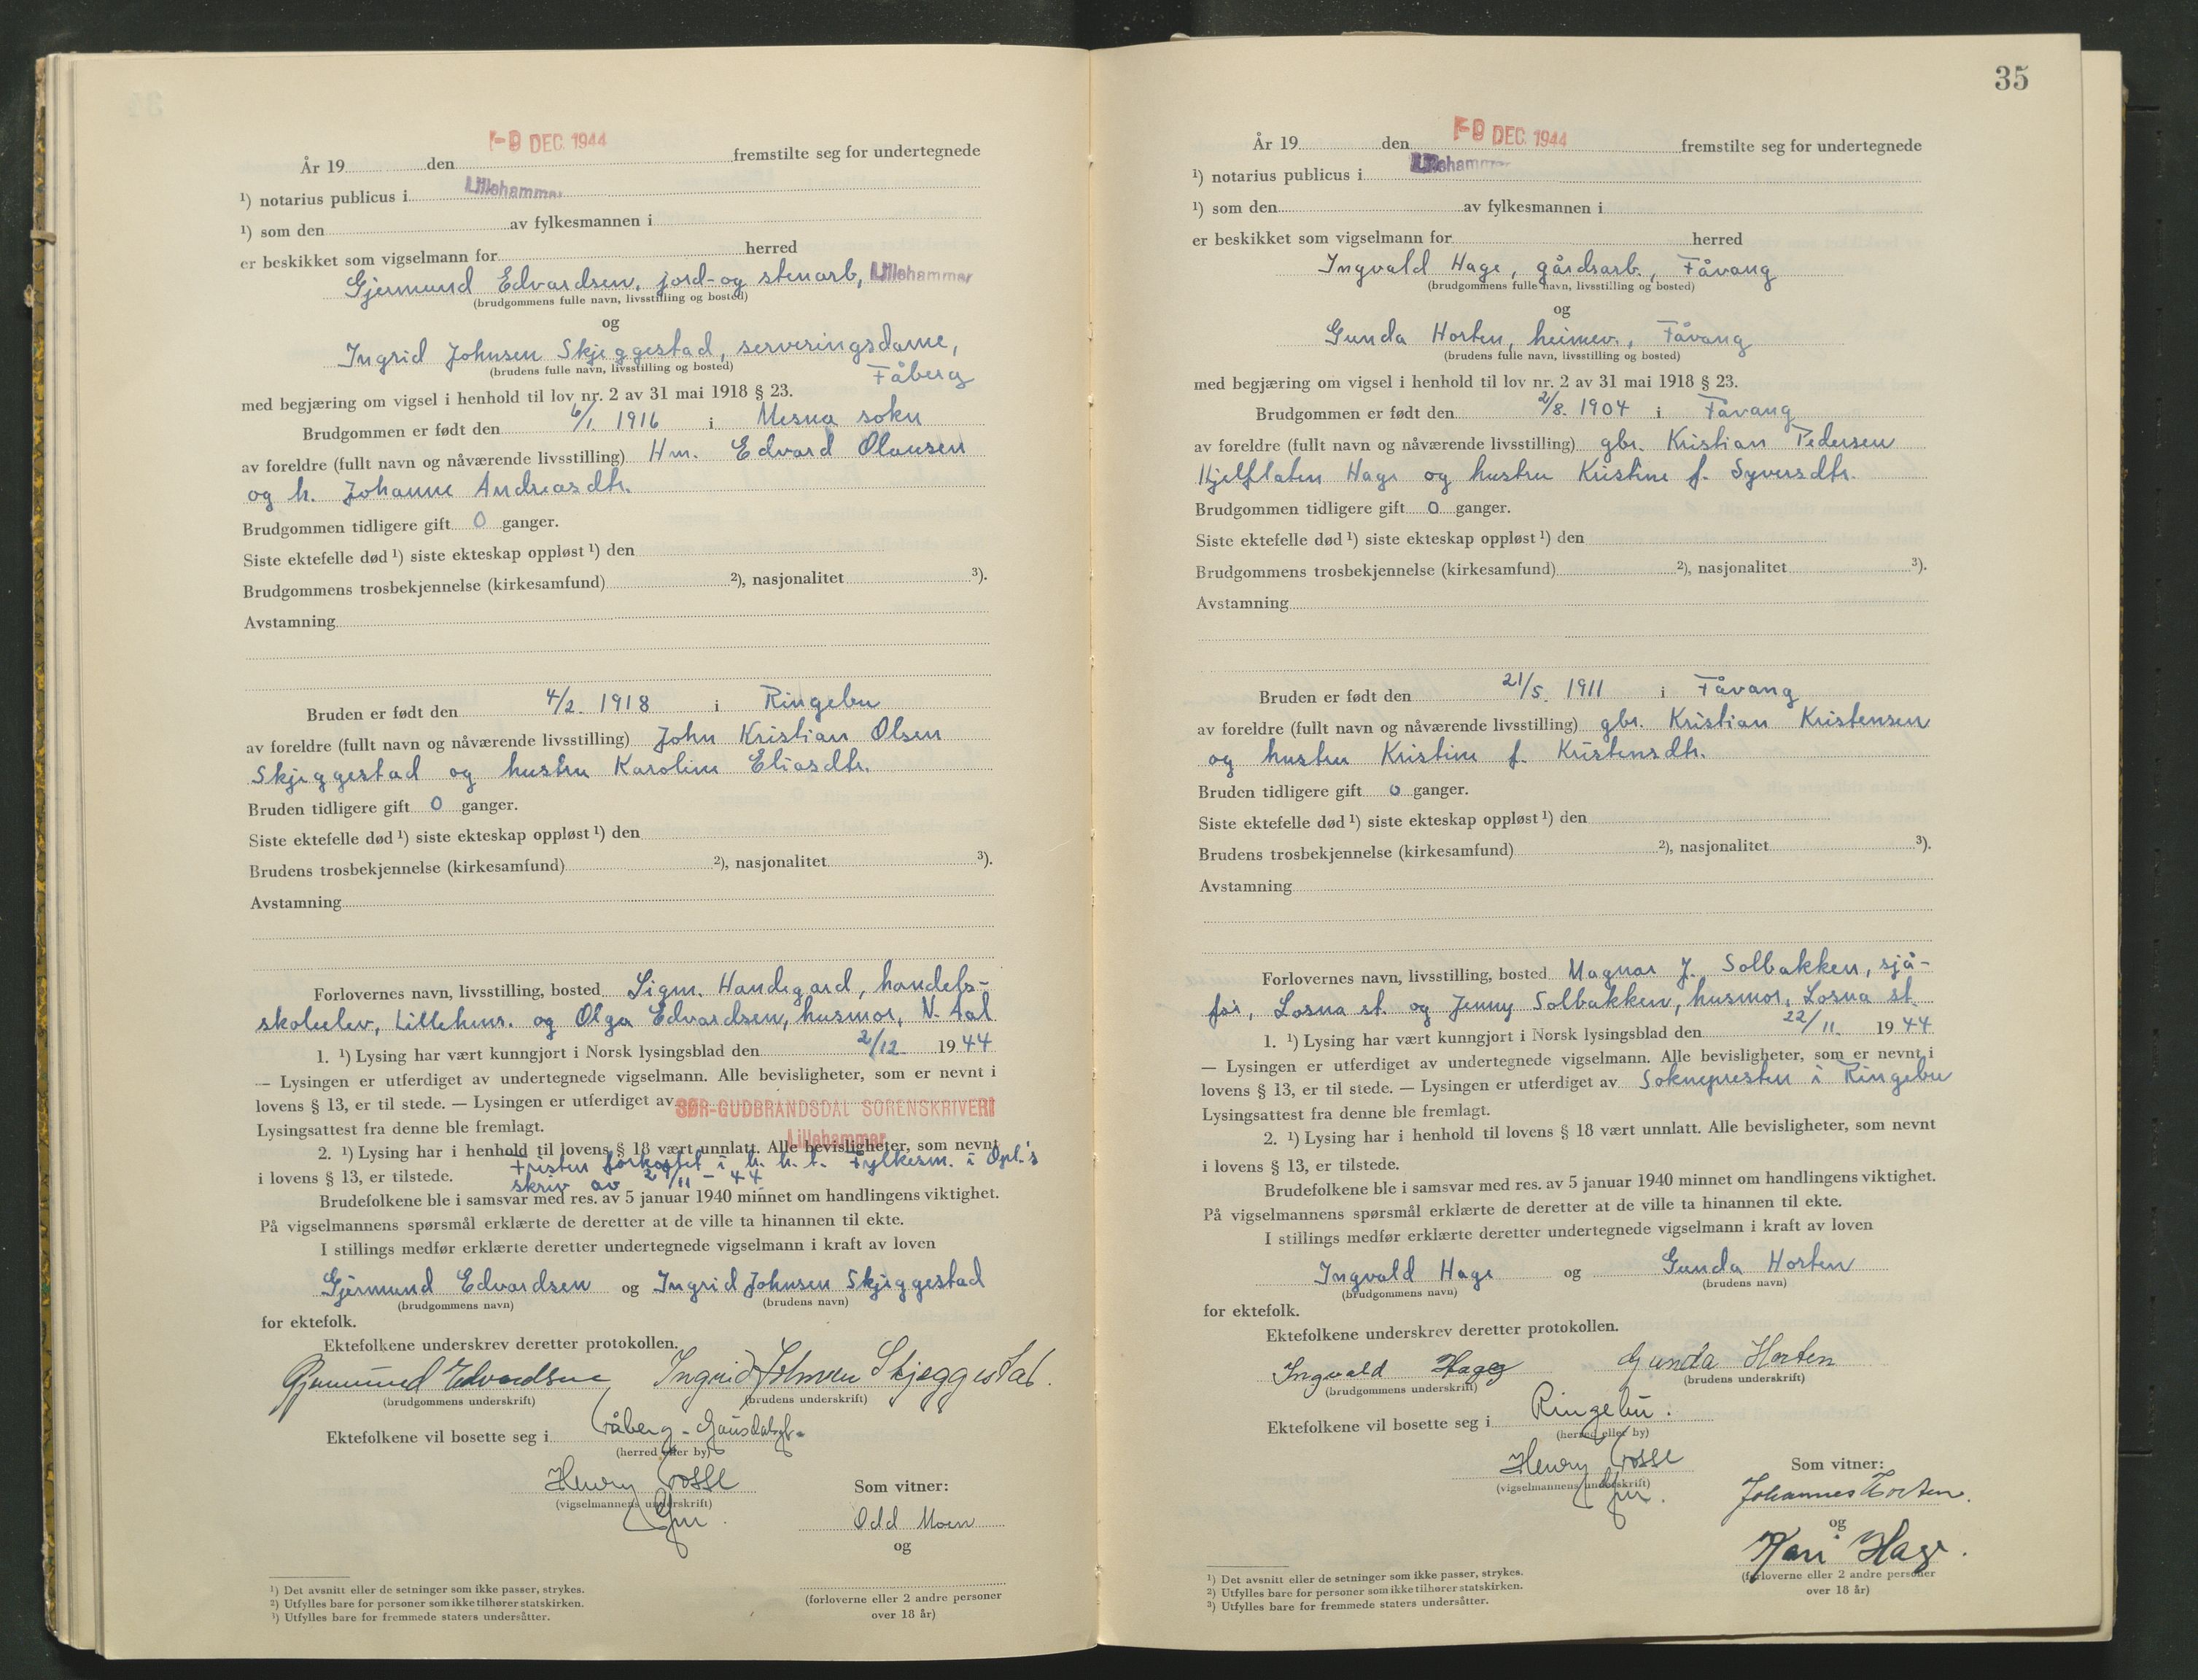 År 19 den - 9 DEC. 1944 fremstilte seg for undertegnede
¹) notarius publicus i Lillehammer
¹) som den av fylkesmannen i
er beskikket som vigselmann for herred
Gjermund Edvardsen, jord- og stenarb, Lillehammer
(brudgommens fulle navn, livsstilling og bosted)
og
Ingrid Johnsen Skjeggestad, serveringsdame,
(brudens fulle navn, livsstilling og bosted) Fåberg
med begjæring om vigsel i henhold til lov nr. 2 av 31 mai 1918 § 23.
Brudgommen er født den 6/1. 1916 i Mesna sokn
av foreldre (fullt navn og nåværende livsstilling) Hm. Edvard Olausen
og h. Johanne Andreasdtr.
Brudgommen tidligere gift 0 ganger.
Siste ektefelle død ¹) siste ekteskap oppløst ¹) den
Brudgommens trosbekjennelse (kirkesamfund) ²), nasjonalitet ³).
Avstamning
Bruden er født den 4/2. 1918 i Ringebu
av foreldre (fullt navn og nåværende livsstilling) John Kristian Olsen
Skjeggestad og hustru Karoline Eliasdtr.
Bruden tidligere gift 0 ganger.
Siste ektefelle død ¹) siste ekteskap oppløst ¹) den
Brudens trosbekjennelse (kirkesamfund) ²), nasjonalitet ³).
Avstamning
Forlovernes navn, livsstilling, bosted Sigm. Handegard, handels-
skoleelev, Lillehmr. og Olga Edvardsen, husmor, N. Aal
1. ¹) Lysing har vært kunngjort i Norsk lysingsblad den 2/12. 1944
— Lysingen er utferdiget av undertegnede vigselmann. Alle bevisligheter, som er nevnt i
lovens § 13, er til stede. — Lysingen er utferdiget av SØR-GUDBRANDSDAL SORENSKRIVERI
Lysingsattest fra denne ble fremlagt.
Lillehammer
2. ¹) Lysing har i henhold til lovens § 18 vært unnlatt. Alle bevisligheter, som nevnt
i lovens § 13, er tilstede. Fristen forkortet i h. h. t. Fylkesm. i Opl.'s
skriv av 27/11 - 44
Brudefolkene ble i samsvar med res. av 5 januar 1940 minnet om handlingens viktighet.
På vigselmannens spørsmål erklærte de deretter at de ville ta hinannen til ekte.
I stillings medfør erklærte deretter undertegnede vigselmann i kraft av loven
Gjermund Edvardsen og Ingrid Johnsen Skjeggestad
(brudgommens navn) (brudens navn)
for ektefolk.
Ektefolkene underskrev deretter protokollen.
Gjermund Edvardsen Ingrid Johnsen Skjeggestad.
(brudgommens underskrift) (brudens underskrift)
Ektefolkene vil bosette seg i Fåberg - Gausdal
(herred eller by)
Henry Fosse
(vigselmannens underskrift)
Som vitner:
Odd Moen
og
(forloverne eller 2 andre personer
over 18 år)
¹) Det avsnitt eller de setninger som ikke passer, strykes.
²) Utfylles bare for personer som ikke tilhører statskirken.
³) Utfylles bare for fremmede staters undersåtter.
35
År 19 den - 9 DEC. 1944 fremstilte seg for undertegnede
¹) notarius publicus i Lillehammer
¹) som den av fylkesmannen i
er beskikket som vigselmann for herred
Ingvald Hage, gårdsarb., Fåvang
(brudgommens fulle navn, livsstilling og bosted)
og
Gunda Horten, heimev., Fåvang
(brudens fulle navn, livsstilling og bosted)
med begjæring om vigsel i henhold til lov nr. 2 av 31 mai 1918 § 23.
Brudgommen er født den 2/8. 1904 i Fåvang
av foreldre (fullt navn og nåværende livsstilling) gbr. Kristian Pedersen
Kjelflaten Hage og hustru Kristine f. Syversdtr.
Brudgommen tidligere gift 0 ganger.
Siste ektefelle død ¹) siste ekteskap oppløst ¹) den
Brudgommens trosbekjennelse (kirkesamfund) ²), nasjonalitet ³).
Avstamning
Bruden er født den 21/5. 1911 i Fåvang
av foreldre (fullt navn og nåværende livsstilling) gbr. Kristian Kristensen
og hustru Kristine f. Kristensdtr.
Bruden tidligere gift 0 ganger.
Siste ektefelle død ¹) siste ekteskap oppløst ¹) den
Brudens trosbekjennelse (kirkesamfund) ²), nasjonalitet ³).
Avstamning
Forlovernes navn, livsstilling, bosted Magnar J. Solbakken, sjå-
før, Losna st. og Jenny Solbakken, husmor, Losna st.
1. ¹) Lysing har vært kunngjort i Norsk lysingsblad den 22/11. 1944
— Lysingen er utferdiget av undertegnede vigselmann. Alle bevisligheter, som er nevnt i
lovens § 13, er til stede. — Lysingen er utferdiget av Soknepresten i Ringebu
Lysingsattest fra denne ble fremlagt.
2. ¹) Lysing har i henhold til lovens § 18 vært unnlatt. Alle bevisligheter, som nevnt
i lovens § 13, er tilstede.
Brudefolkene ble i samsvar med res. av 5 januar 1940 minnet om handlingens viktighet.
På vigselmannens spørsmål erklærte de deretter at de ville ta hinannen til ekte.
I stillings medfør erklærte deretter undertegnede vigselmann i kraft av loven
Ingvald Hage og Gunda Horten
(brudgommens navn) (brudens navn)
for ektefolk.
Ektefolkene underskrev deretter protokollen.
Ingvald Hage Gunda Horten
(brudgommens underskrift) (brudens underskrift)
Ektefolkene vil bosette seg i Ringebu.
(herred eller by)
Henry Fosse
(vigselmannens underskrift)
Som vitner:
Johannes Horten.
og
Kari Hage.
(forloverne eller 2 andre personer
over 18 år)
¹) Det avsnitt eller de setninger som ikke passer, strykes.
²) Utfylles bare for personer som ikke tilhører statskirken.
³) Utfylles bare for fremmede staters undersåtter.